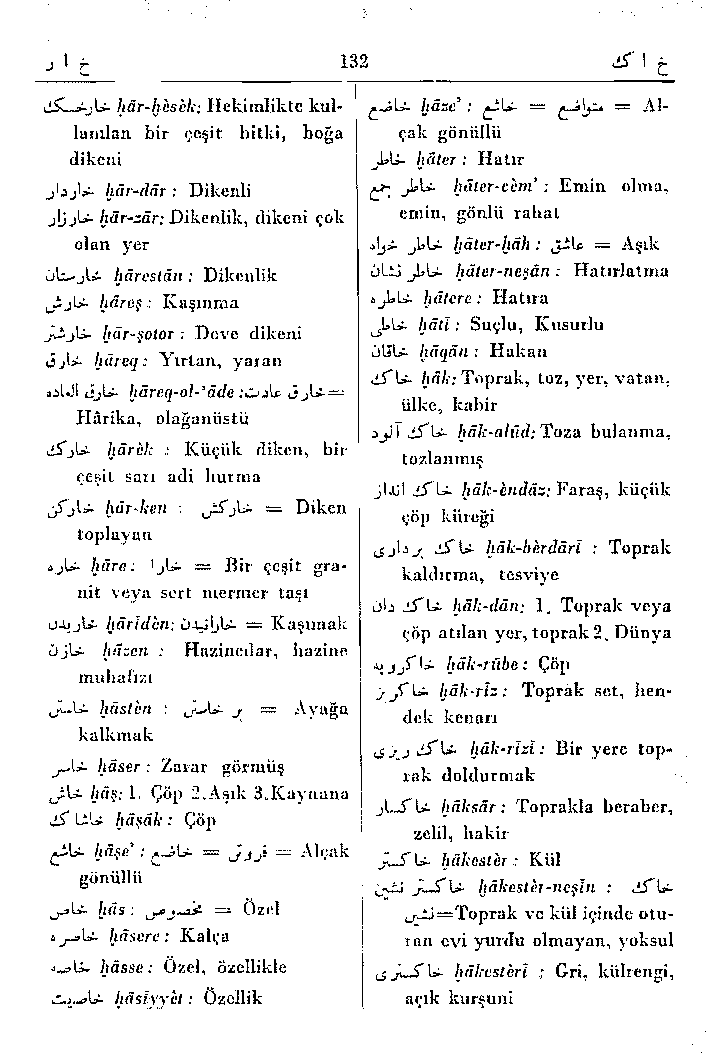 خ ا ر
132
خ ا ك
خارخسك ḫār-ḫèsèk: Hekimlikte kul-
lanılan bir çeşit bitki, boğa
dikeni
خاردار ḫār-dār : Dikenli
خارزار ḫār-zār: Dikenlik, dikeni çok
olan yer
خارستان ḫārestān : Dikenlik
خارش ḫāreş : Kaşınma
خارشتر ḫār-şotor : Deve dikeni
خارق ḫāreq : Yırtan, yaran
خارق العاده ḫāreq-ol-'āde : خارق عادت =
Hârika, olağanüstü
خارك ḫārèk : Küçük diken, bir
çeşit sarı adi hurma
خاركن ḫār-ken : خاركش = Diken
toplayan
خاره ḫāre: خارا = Bir çeşit gra-
nit veya sert mermer taşı
خاريدن ḫārīdèn: خارانيدن = Kaşımak
خازن ḫāzen : Hazinedar, hazine
muhafızı
خاستن ḫāstèn : بر خاستن = Ayağa
kalkmak
خاسر ḫāser : Zarar görmüş
خاش ḫāş: 1. Çöp 2.Aşık 3.Kaynana
خاشاك ḫāşāk : Çöp
خاشع ḫāşe' : خاضع = فروتن = Alçak
gönüllü
خاص ḫās : مخصوص = Özel
خاصره ḫāsere : Kalça
خاصه ḫāsse : Özel, özellikle
خاصيت ḫāsīyyèt : Özellik
خاضع ḫāze' : خاشع = متواضع = Al-
çak gönüllü
خاطر ḫāter : Hatır
خاطر جمع ḫāter-cèm' : Emin olma,
emin, gönlü rahat
خاطر خواه ḫāter-ḫāh : عاشق = Aşık
خاطر نشان ḫāter-neşān : Hatırlatma
خاطره ḫātere : Hatıra
خاطى ḫātī : Suçlu, Kusurlu
خاقان ḫāqān : Hakan
خاك ḫāk: Toprak, toz, yer, vatan,
ülke, kabir
خاك آلود ḫāk-alūd: Toza bulanma,
tozlanmış
خاك انداز ḫāk-èndāz: Faraş, küçük
çöp küreği
خاك بردارى ḫāk-bèrdārī : Toprak
kaldırma, tesviye
خاك دان ḫāk-dān: 1. Toprak veya
çöp atılan yer, toprak 2. Dünya
خاكروبه ḫāk-rūbe : Çöp
خاكريز ḫāk-rīz : Toprak set, hen-
dek kenarı
خاك ريزى ḫāk-rīzī : Bir yere top-
rak doldurmak
خاكسار ḫāksār : Toprakla beraber,
zelil, hakir
خاكستر ḫākestèr : Kül
خاكستر نشين ḫākestèr-neşīn : خاك
نشين=Toprak ve kül içinde otu-
ran evi yurdu olmayan, yoksul
خاكسترى ḫākestèrī : Gri, külrengi,
açık kurşuni